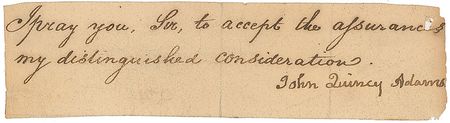 I pray you, Sir, to accept the assurances
my distinguished consideration.
John Quincy Adams